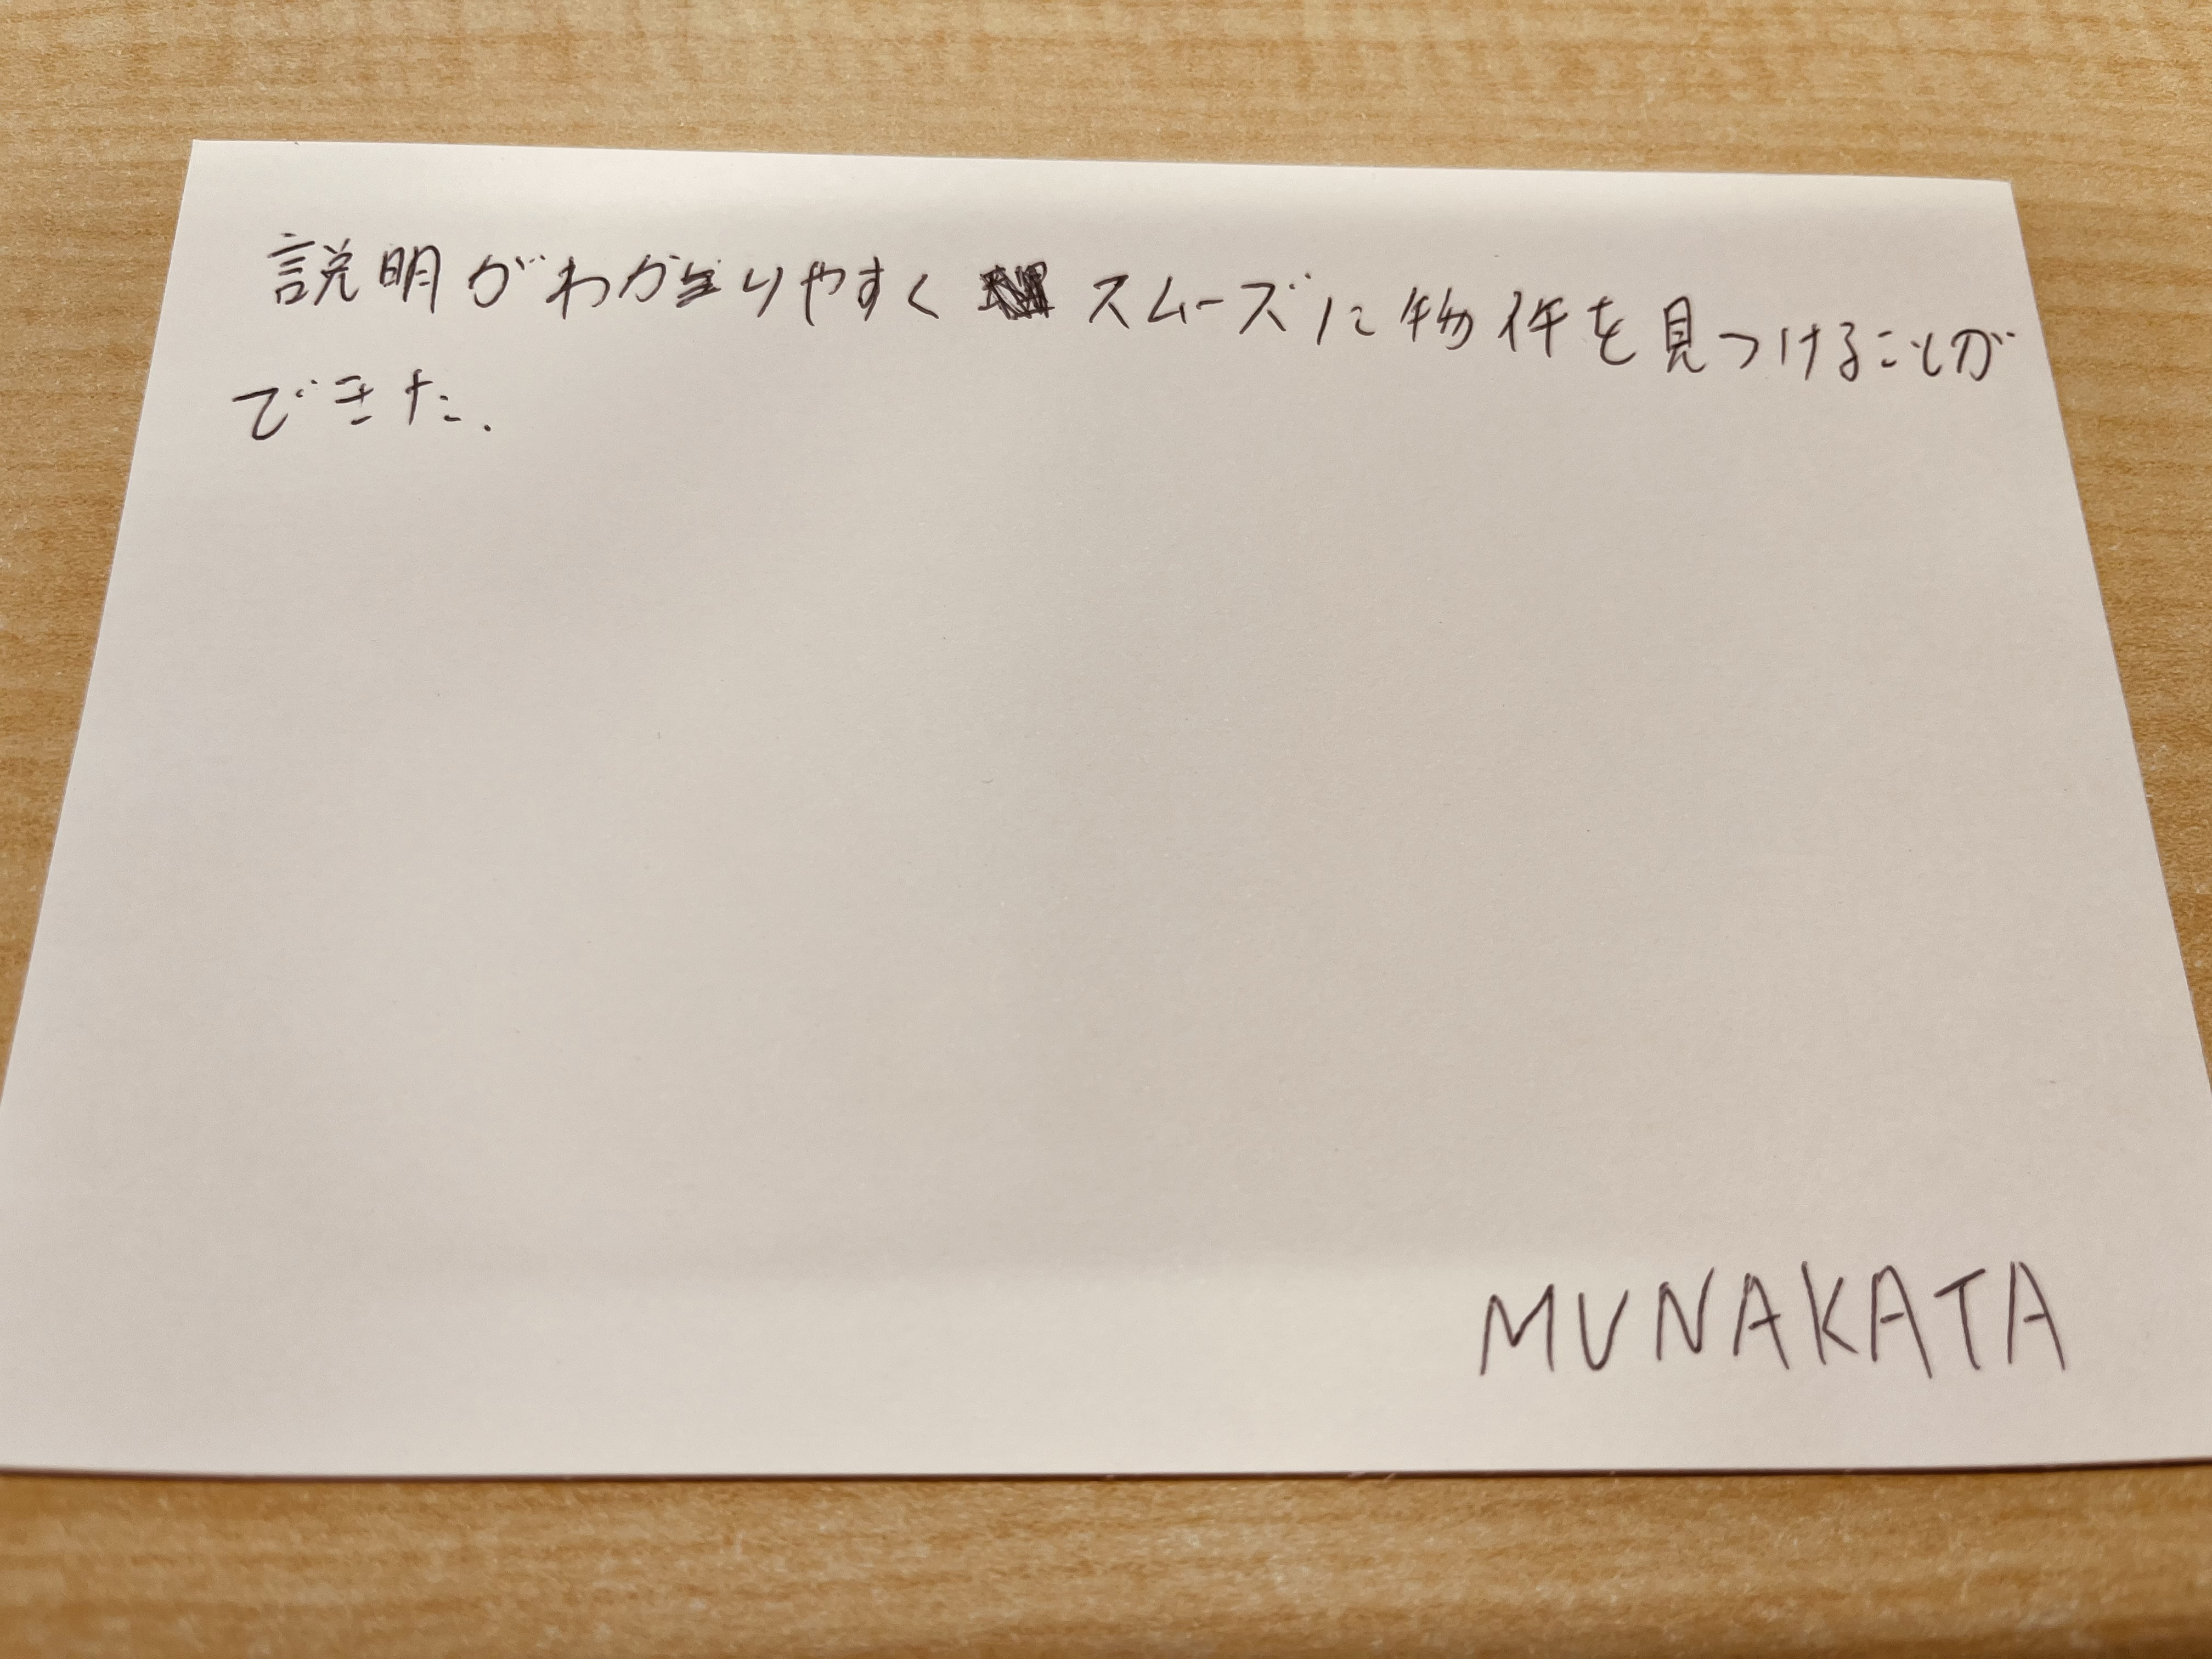 説明がわかりやすく スムーズに物件を見つけることが
できた.
MUNAKATA